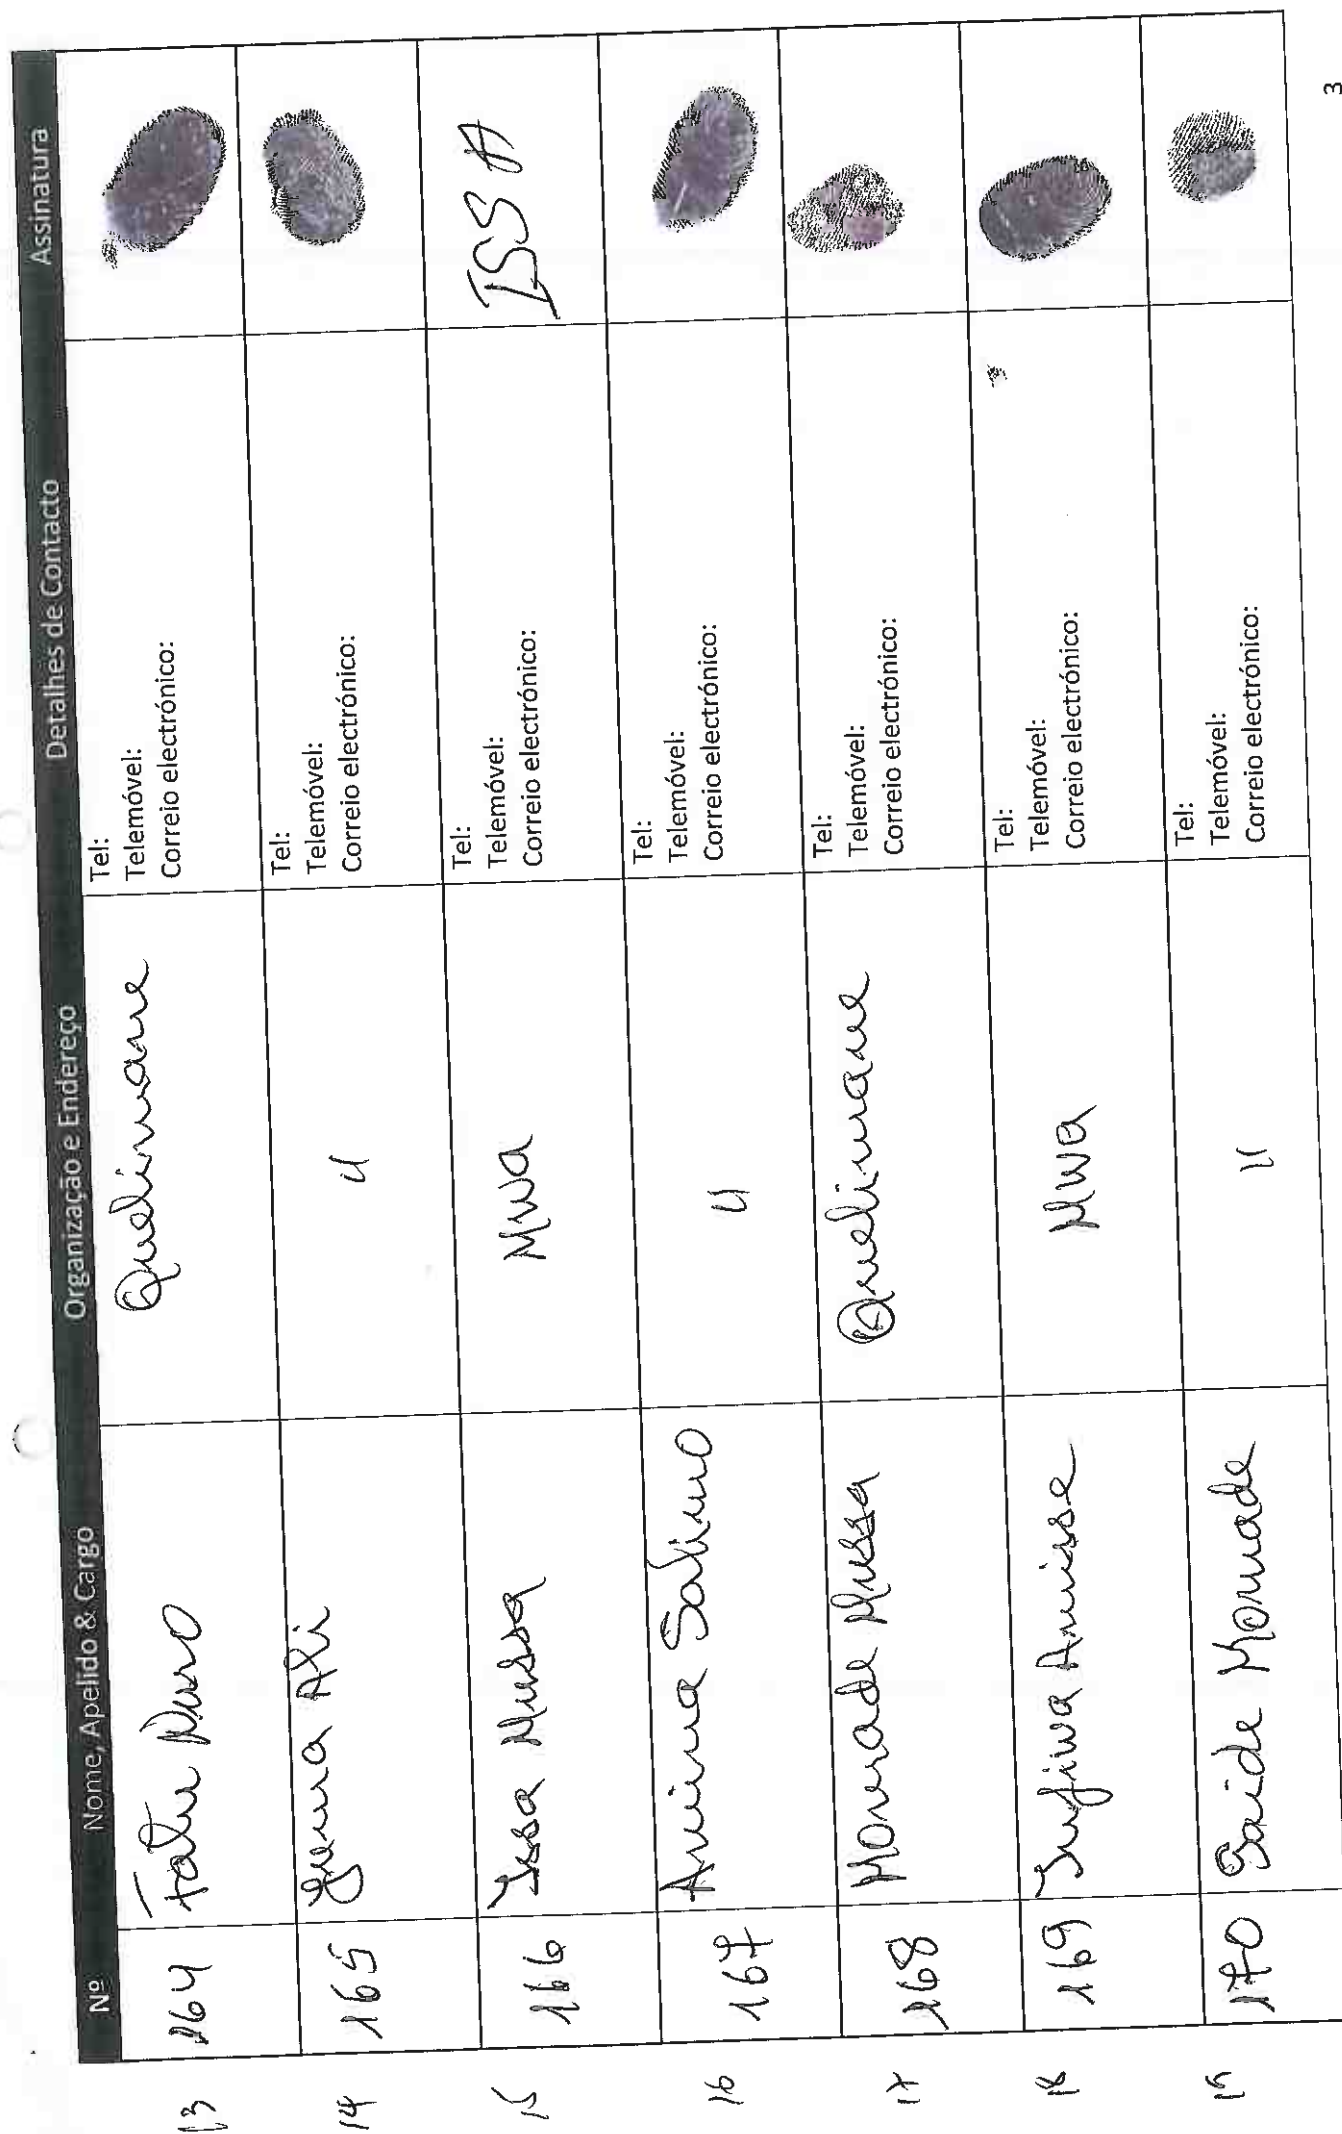 Nº Nome, Apelido & Cargo Organização e Endereço Detalhes de Contacto Assinatura
13 164 Fatu Quelimane
Tel:
Telemóvel:
Correio electrónico:
14 165 Juma Ali 〃
Tel:
Telemóvel:
Correio electrónico:
15 166 Issa Mussa Mwa
Tel:
Telemóvel:
Correio electrónico:
ISSA
16 167 Amina Salimo 〃
Tel:
Telemóvel:
Correio electrónico:
17 168 Momade Mussa Quelimane
Tel:
Telemóvel:
Correio electrónico:
18 169 Amisse Mwa
Tel:
Telemóvel:
Correio electrónico:
19 170 Saide Momade 〃
Tel:
Telemóvel:
Correio electrónico:
3